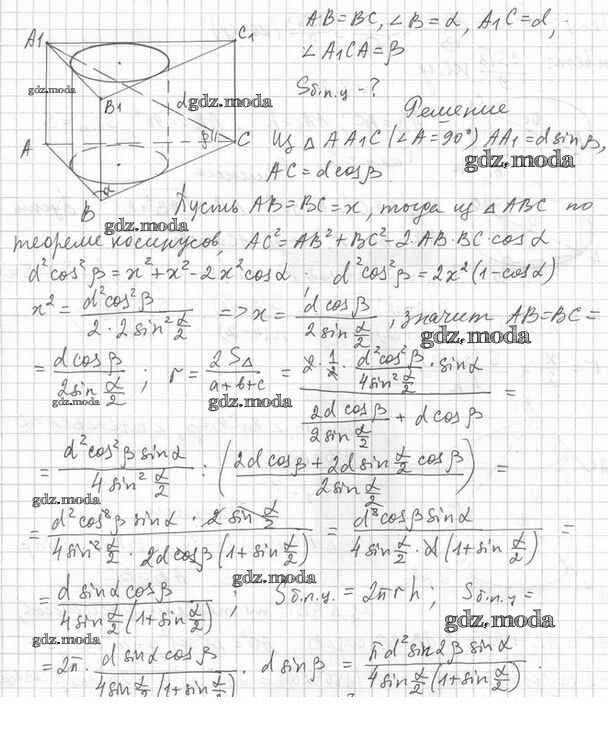 AB=BC, ∠B=α, A₁C=d,
∠A₁CA=β
Sб.п.ц -?
Решение
Из △AA₁C (∠A=90°) AA₁=d sinβ,
AC=d cosβ
A1
C1
B1
d
β
A
C
B
α
gdz.moda
gdz.moda
gdz.moda
gdz.moda
Пусть AB=BC=x, тогда из △ABC по
теореме косинусов, AC²=AB²+BC²-2·AB·BC·cosα
d²cos²β=x²+x²-2x²cosα ; d²cos²β=2x²(1-cosα)
x² = d²cos²β / (2·2sin² α/2) => x = d cosβ / (2 sin α/2), значит AB=BC=
gdz.moda
= d cosβ / (2 sin α/2) ; r = 2S△ / (a+b+c) = (2·1/2 · d²cos²β / (4sin² α/2) · sinα) / (2d cosβ / (2 sin α/2) + d cosβ) =
gdz.moda
= d²cos²β sinα / (4 sin² α/2) : ((2d cosβ + 2d sin α/2 cosβ) / (2 sin α/2)) =
gdz.moda
= (d²cos²β sinα · 2 sin α/2) / (4sin² α/2 · 2d cosβ (1+sin α/2)) = d² cosβ sinα / (4 sin α/2 · d (1+sin α/2)) =
gdz.moda
= d sinα cosβ / (4 sin α/2 (1+sin α/2)) ; Sб.п.ц. = 2πrh ; Sб.п.ц =
gdz.moda
gdz.moda
= 2π · d sinα cosβ / (4 sin α/2 (1+sin α/2)) · d sinβ = πd² sin2β sinα / (4 sin α/2 (1+sin α/2)) .